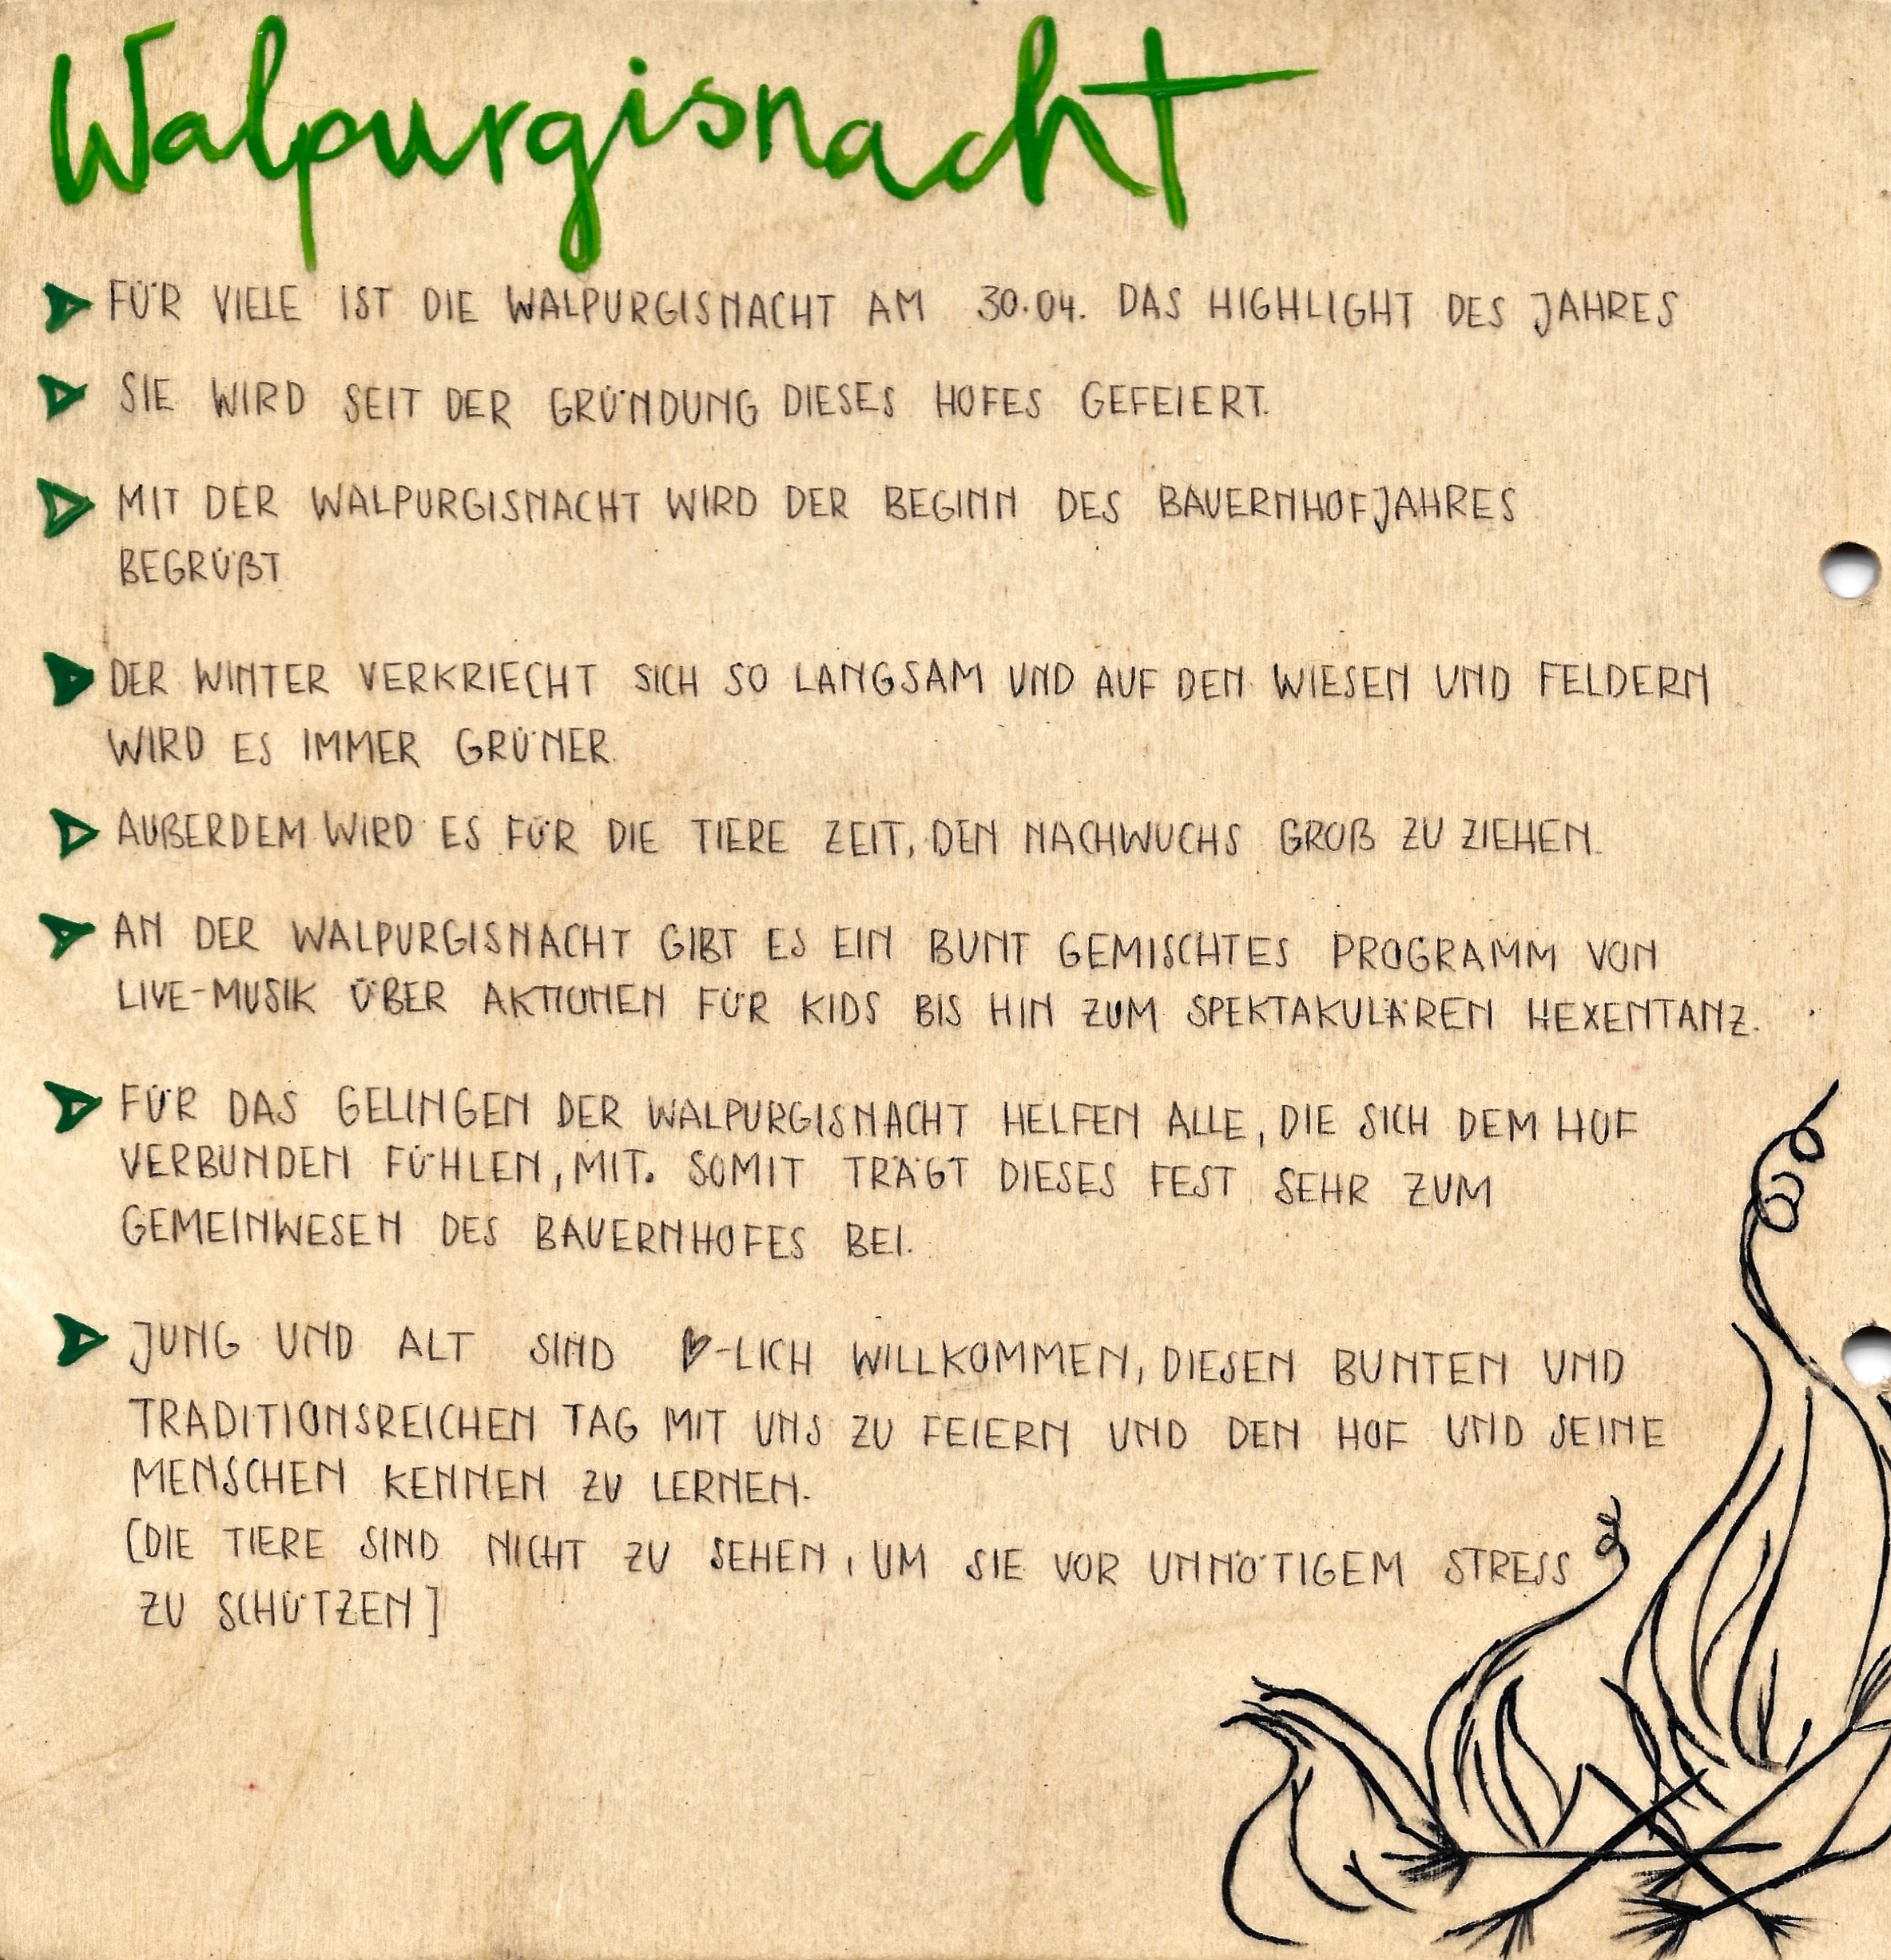 Walpurgisnacht
FÜR VIELE IST DIE WALPURGISNACHT AM 30.04. DAS HIGHLIGHT DES JAHRES
SIE WIRD SEIT DER GRÜNDUNG DIESES HOFES GEFEIERT.
MIT DER WALPURGISNACHT WIRD DER BEGINN DES BAUERNHOFJAHRES
BEGRÜßT
DER WINTER VERKRIECHT SICH SO LANGSAM UND AUF DEN WIESEN UND FELDERN
WIRD ES IMMER GRÜNER.
AUßERDEM WIRD ES FÜR DIE TIERE ZEIT, DEN NACHWUCHS GROß ZU ZIEHEN.
AN DER WALPURGISNACHT GIBT ES EIN BUNT GEMISCHTES PROGRAMM VON
LIVE-MUSIK ÜBER AKTIONEN FÜR KIDS BIS HIN ZUM SPEKTAKULÄREN HEXENTANZ.
FÜR DAS GELINGEN DER WALPURGISNACHT HELFEN ALLE, DIE SICH DEM HOF
VERBUNDEN FÜHLEN, MIT. SOMIT TRÄGT DIESES FEST SEHR ZUM
GEMEINWESEN DES BAUERNHOFES BEI.
JUNG UND ALT SIND ♥-LICH WILLKOMMEN, DIESEN BUNTEN UND
TRADITIONSREICHEN TAG MIT UNS ZU FEIERN UND DEN HOF UND SEINE
MENSCHEN KENNEN ZU LERNEN.
[DIE TIERE SIND NICHT ZU SEHEN, UM SIE VOR UNNÖTIGEM STRESS
ZU SCHÜTZEN]